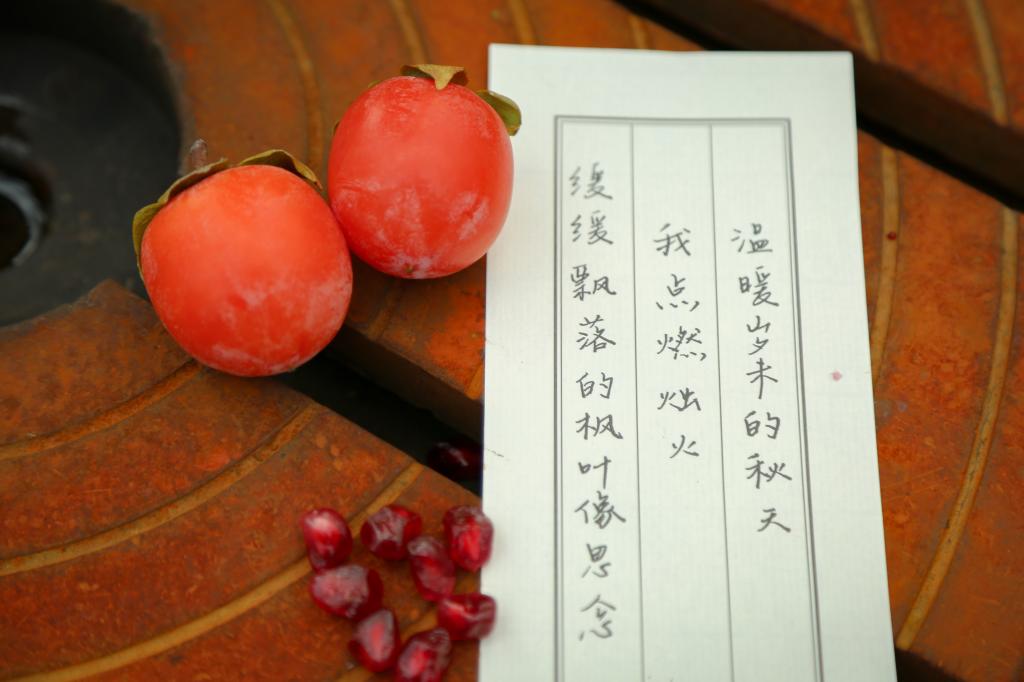 缓缓飘落的枫叶像思念
我点燃烛火
温暖岁末的秋天